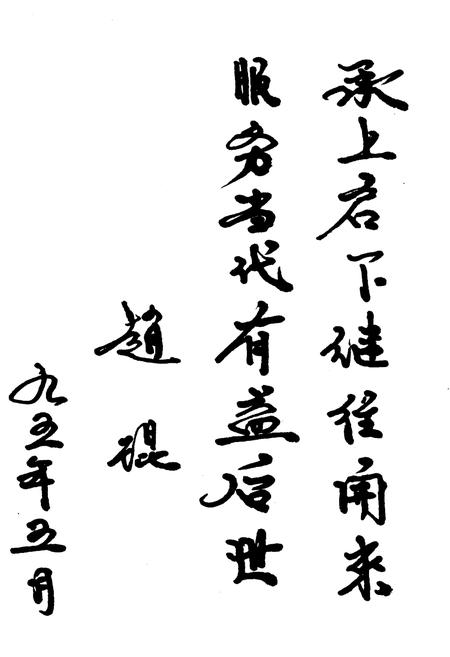 承上启下继往开来
服务当代有益后世
趙琨
九五年五月